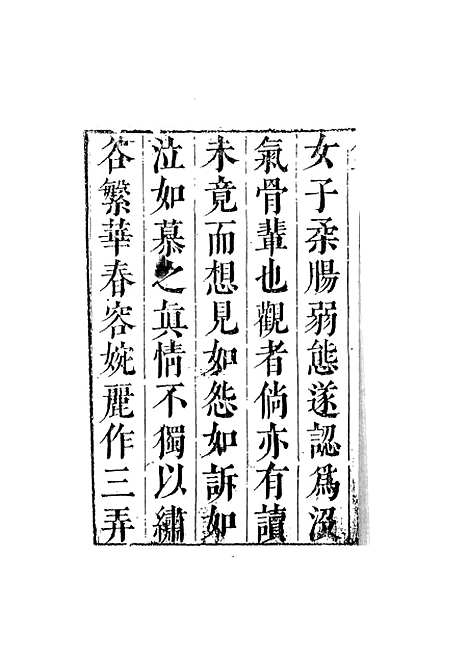 女子柔腸弱態遂認爲沒
氣骨輩也觀者倘亦有讀
未竟而想見如怨如訴如
泣如慕之眞情不獨以繡
谷繁華春容婉麗作三弄